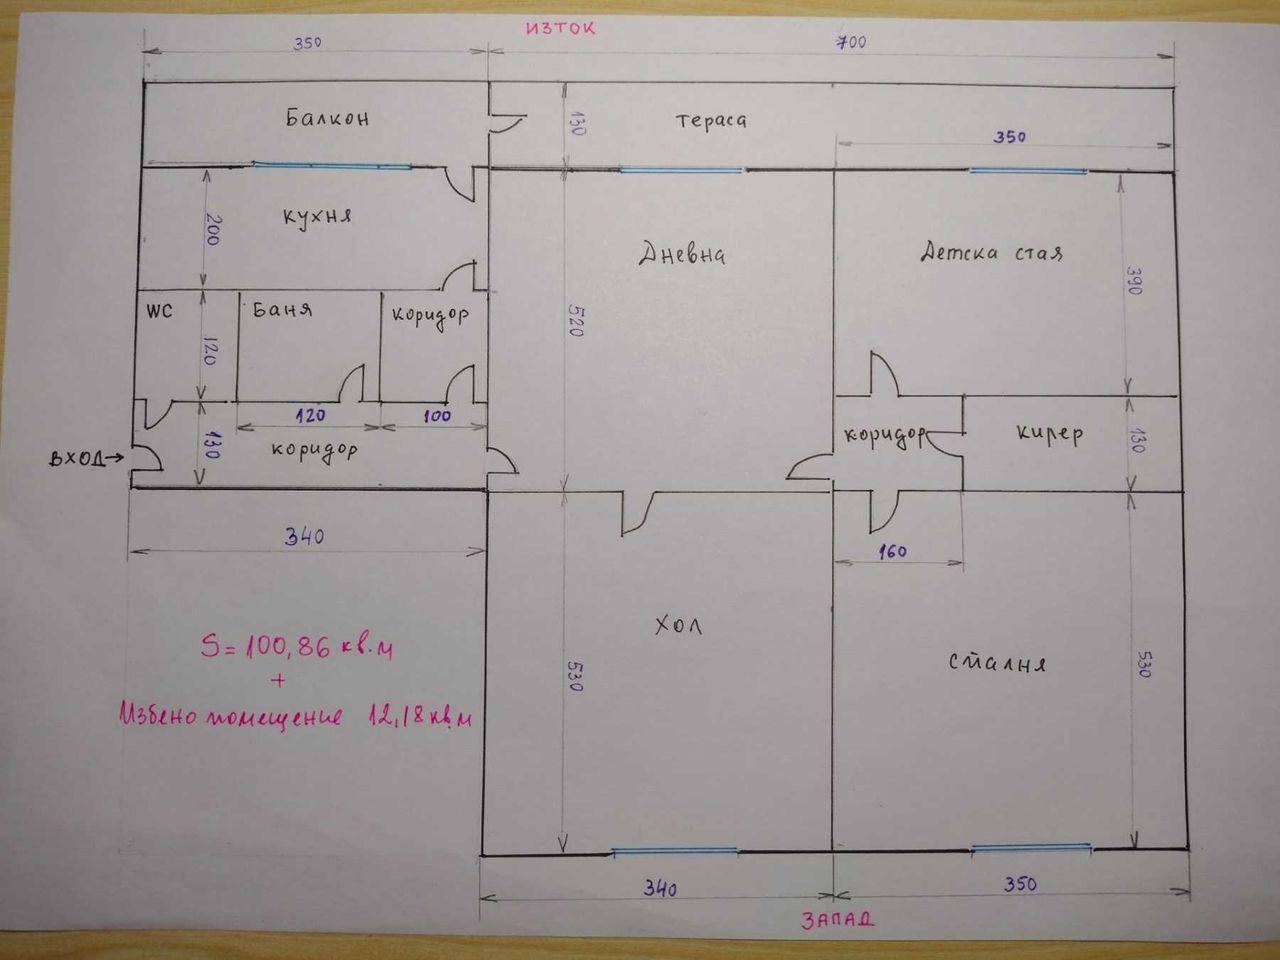 ИЗТОК
350
700
Балкон
130
тераса
350
200
кухня
Дневна
Детска стая
390
WC
Баня
коридор
120
520
120
100
130
коридор
вход→
коридор
килер
130
340
160
S = 100,86 кв.м
+
Избено помещение 12,18 кв.м
хол
спалня
530
530
340
350
ЗАПАД